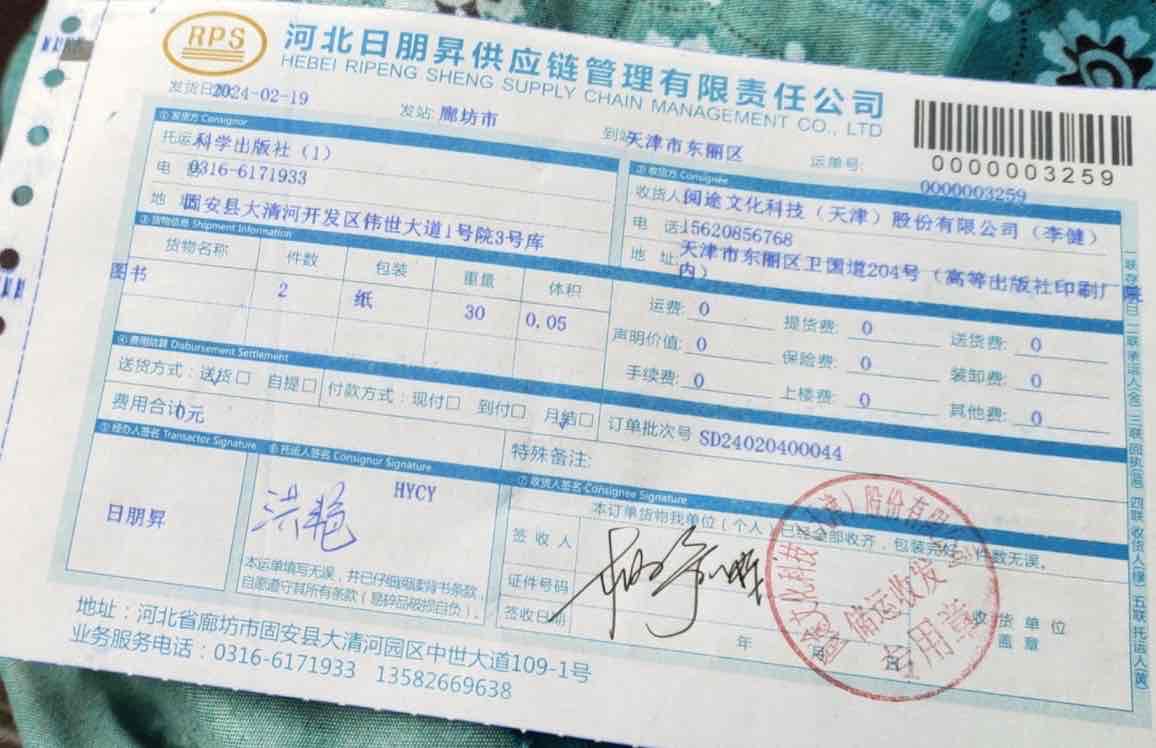 RPS
河北日朋昇供应链管理有限责任公司
HEBEI RIPENG SHENG SUPPLY CHAIN MANAGEMENT CO., LTD
发货日期 2024-02-19
发站: 廊坊市
到站 天津市东丽区
运单号:
0000003259
0000003259
①发货方 Consignor
托运 科学出版社（1）
电 0316-6171933
地 址 固安县大清河开发区伟世大道1号院3号库
②收货方 Consignee
收货人 阅途文化科技（天津）股份有限公司（李健）
电 话 15620856768
地 址: 天津市东丽区卫国道204号（高等出版社印刷厂院
内）
③货物信息 Shipment Information
货物名称 件数 包装 重量 体积
图书 2 纸 30 0.05
运费: 0 提货费: 0 送货费: 0
声明价值: 0 保险费: 0 装卸费: 0
手续费: 0 上楼费: 0 其他费: 0
④费用结算 Disbursement Settlement
送货方式: 送货□ 自提□ 付款方式: 现付□ 到付□ 月结□
订单批次号 SD24020400044
费用合计 0元
特殊备注:
⑤经办人签名 Transactor Signature
日朋昇
⑥托运人签名 Consignor Signature
HYCY
洪艳
本运单填写无误，并已仔细阅读背书条款，
自愿遵守其所有条款（易碎品破损自负）。
⑦收货人签名 Consignee Signature
本订单货物我单位（个人）已经全部收齐，包装完好，件数无误。
签收人
证件号码
签收日期
年 月
收货单位
盖章
阅途文化科技（天津）股份有限公司
储运收发
专用章
一联存根(白) 二联承运人(金) 三联回执(蓝) 四联收货人(绿) 五联托运人(黄)
地址：河北省廊坊市固安县大清河园区中世大道109-1号
业务服务电话：0316-6171933 13582669638